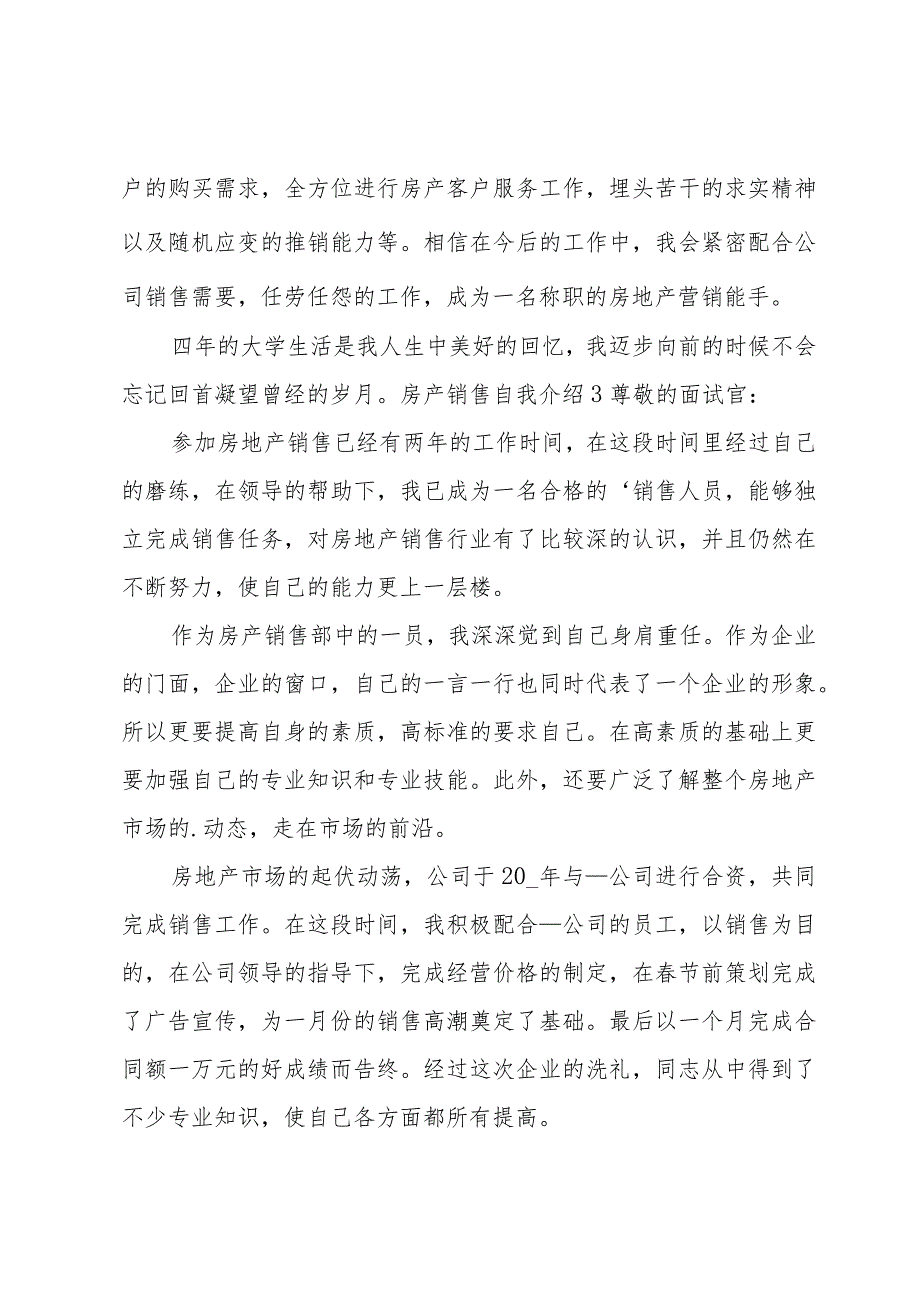 户的购买需求，全方位进行房产客户服务工作，埋头苦干的求实精神
以及随机应变的推销能力等。相信在今后的工作中，我会紧密配合公
司销售需要，任劳任怨的工作，成为一名称职的房地产营销能手。
四年的大学生活是我人生中美好的回忆，我迈步向前的时候不会
忘记回首凝望曾经的岁月。房产销售自我介绍 3 尊敬的面试官：
参加房地产销售已经有两年的工作时间，在这段时间里经过自己
的磨练，在领导的帮助下，我已成为一名合格的‘销售人员，能够独
立完成销售任务，对房地产销售行业有了比较深的认识，并且仍然在
不断努力，使自己的能力更上一层楼。
作为房产销售部中的一员，我深深觉到自己身肩重任。作为企业
的门面，企业的窗口，自己的一言一行也同时代表了一个企业的形象。
所以更要提高自身的素质，高标准的要求自己。在高素质的基础上更
要加强自己的专业知识和专业技能。此外，还要广泛了解整个房地产
市场的.动态，走在市场的前沿。
房地产市场的起伏动荡，公司于 20_年与—公司进行合资，共同
完成销售工作。在这段时间，我积极配合—公司的员工，以销售为目
的，在公司领导的指导下，完成经营价格的制定，在春节前策划完成
了广告宣传，为一月份的销售高潮奠定了基础。最后以一个月完成合
同额一万元的好成绩而告终。经过这次企业的洗礼，同志从中得到了
不少专业知识，使自己各方面都所有提高。